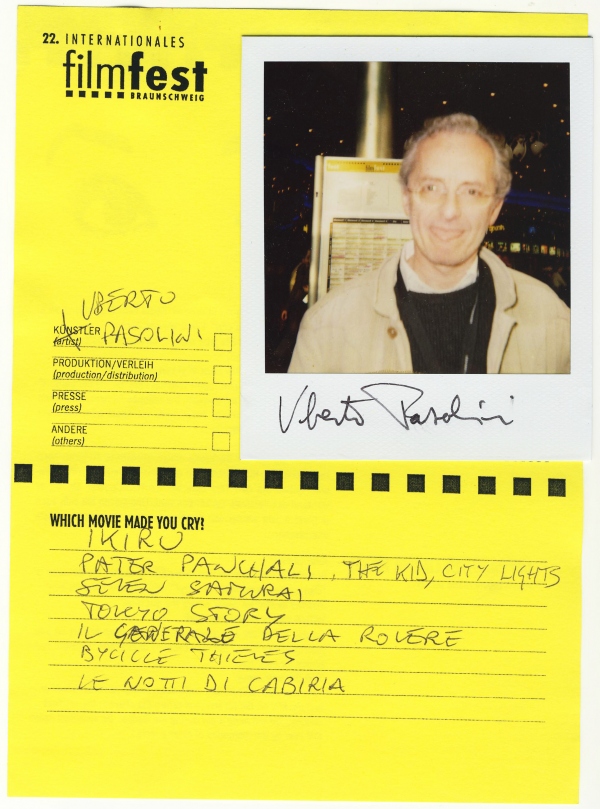 22. INTERNATIONALES
filmfest
BRAUNSCHWEIG
UBERTO
PASOLINI
KÜNSTLER
(artist)
PRODUKTION/VERLEIH
(production/distribution)
PRESSE
(press)
ANDERE
(others)
Uberto Pasolini
WHICH MOVIE MADE YOU CRY?
IKIRU
PATER PANCHALI, THE KID, CITY LIGHTS
SEVEN SAMURAI
TOKYO STORY
IL GENERALE DELLA ROVERE
BYCICLE THIEVES
LE NOTTI DI CABIRIA